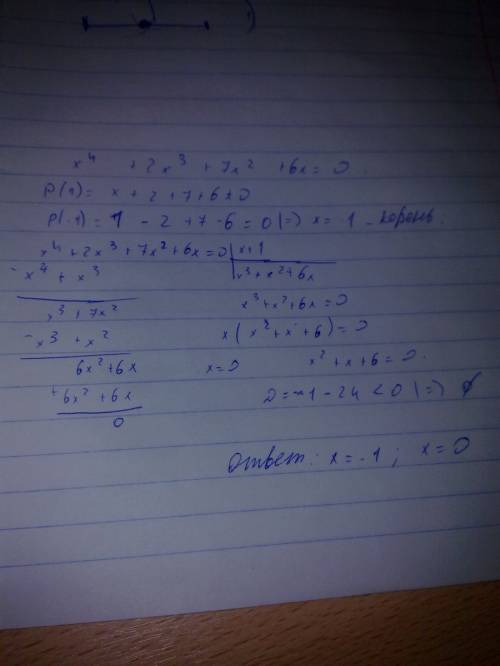 x⁴ + 2x³ + 7x² + 6x = 0.
P(1) = x + 2 + 7 + 6 ≠ 0
P(-1) = 1 - 2 + 7 - 6 = 0 |=> x = 1 - корень.
x⁴ + 2x³ + 7x² + 6x = 0 | x+1
- x⁴ + x³ x³ + x² + 6x
x³ + 7x² x³ + x² + 6x = 0
- x³ + x² x(x² + x + 6) = 0
6x² + 6x x = 0 x² + x + 6 = 0.
6x² + 6x D = 1 - 24 < 0 |=> ∅
0
Ответ: x = -1; x = 0